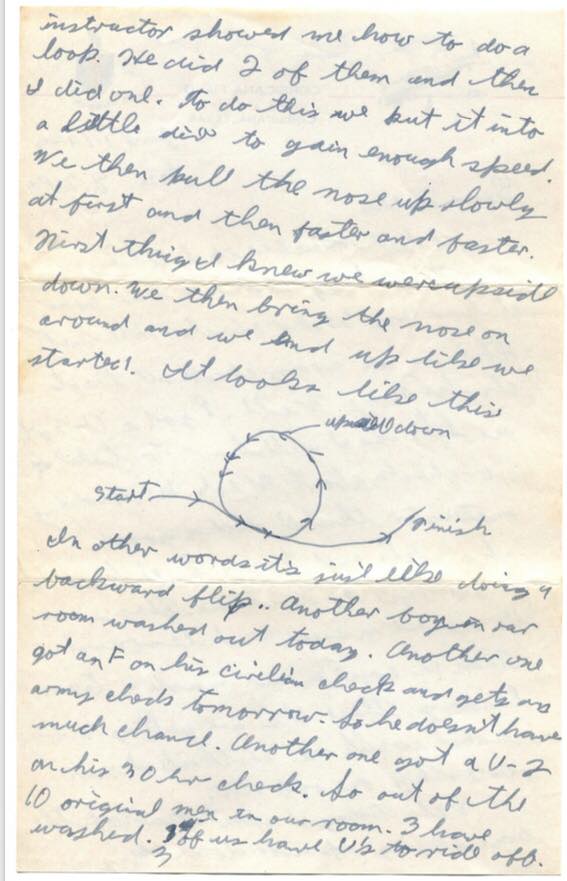 instructor showed me how to do a
loop. We did 2 of them and then
I did one. To do this we put it into
a little dive to gain enough speed.
We then pull the nose up slowly
at first and then faster and faster.
First thing I knew we were upside
down. We then bring the nose on
around and we end up like we
started. It looks like this
upside down
start
finish
In other words it's just like doing a
backward flip.. Another boy in our
room washed out today. Another one
got an F on his civilian check and gets an
army check tomorrow. So he doesn't have
much chance. Another one got a U-2
on his 30 hr check. So out of the
10 original men in our room. 3 have
washed. 3 of us have U's to ride off.